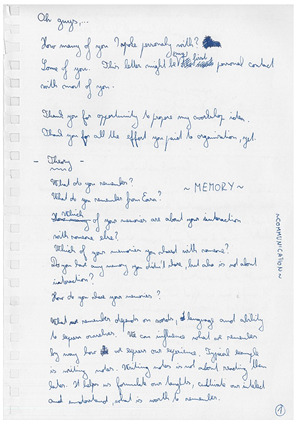 Oh guys,...
How many of you I spoke personally with?
Some of you. This letter might be our first personal contact
with most of you.
Thank you for opportunity to propose my workshop idea.
Thank you for all the effort you paid to organization, yet.
- Theory -
What do you remember?
~ MEMORY ~
What do you remember from
Which of your memories are about your interaction
with someone else?
Which of your memories you shared with someone?
Do you have any memory you didn't share, but also is not about
interaction?
How do you share your memories?
~ COMMUNICATION ~
What we remember depends on words, language and ability
to express ourselves. We can influence what we remember
by many how we express our experience. Typical example
is writing notes. Writing notes is not about reading them
later. It helps us formulate our thoughts, cultivate our intellect
and understand, what is worth to remember.
1